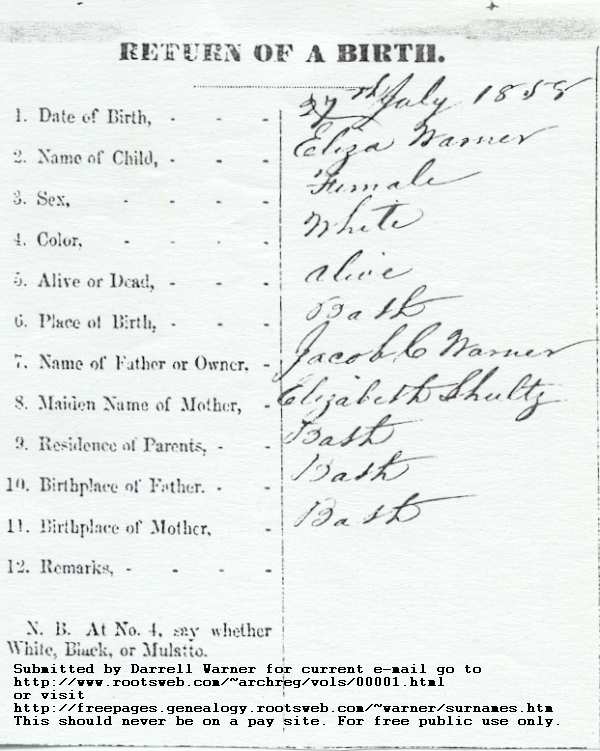 RETURN OF A BIRTH.
1. Date of Birth, - - - 27th July 1858
2. Name of Child, - - - Eliza Warner
3. Sex, - - - - Female
4. Color, - - - - White
5. Alive or Dead, - - - alive
6. Place of Birth, - - - Bath
7. Name of Father or Owner. - Jacob C Warner
8. Maiden Name of Mother, - Elizabeth Shultz
9. Residence of Parents, - - Bath
10. Birthplace of Father. - - Bath
11. Birthplace of Mother, - Bath
12. Remarks, - - - -
N. B. At No. 4, say whether
White, Black, or Mulatto.
Submitted by Darrell Warner for current e-mail go to
http://www.rootsweb.com/~archreg/vols/00001.html
or visit
http://freepages.genealogy.rootsweb.com/~warner/surnames.htm
This should never be on a pay site. For free public use only.